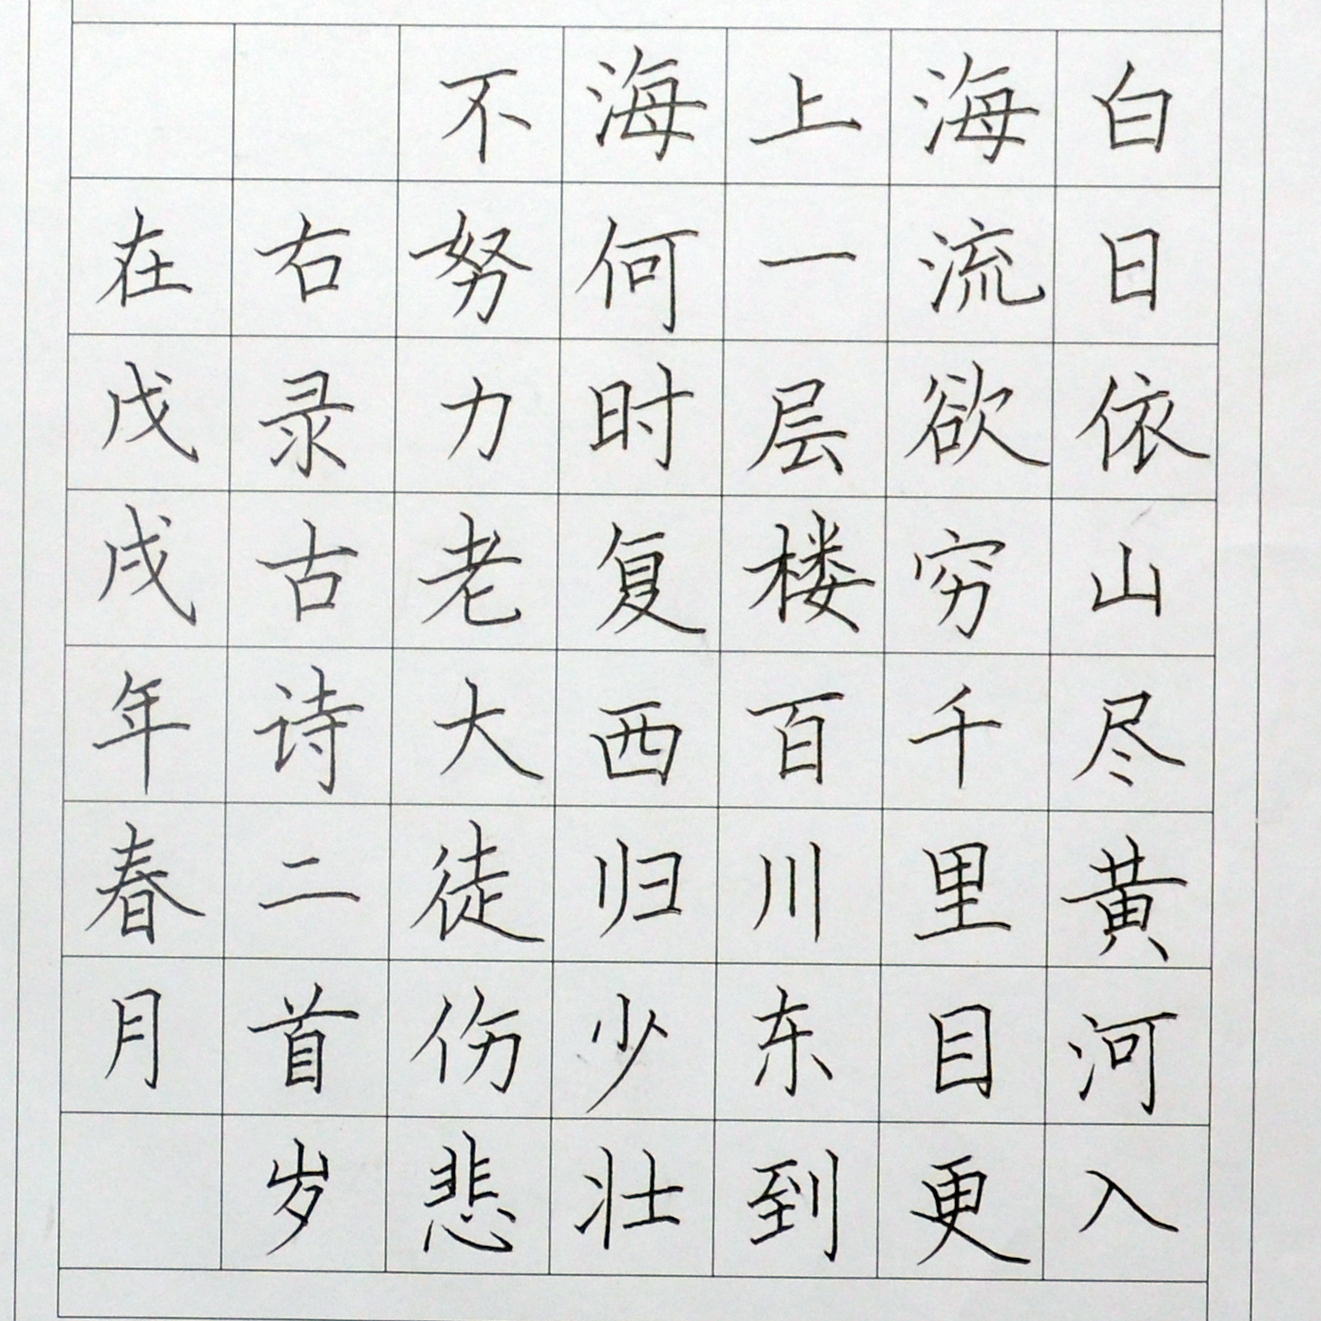 白日依山尽黄河入
海流欲穷千里目更
上一层楼百川东到
海何时复西归少壮
不努力老大徒伤悲
右录古诗二首岁
在戊戌年春月